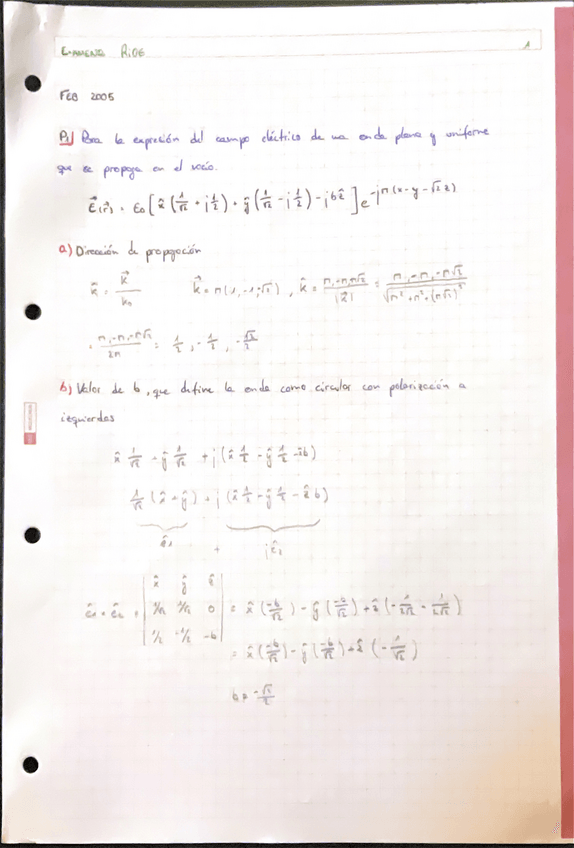 EXAMENES RIOE 1
FEB 2005
P1) Para la expresión del campo eléctrico de una onda plana y uniforme
que se propaga en el vacío.
E⃗(r⃗) = E₀[x̂(1/√2 + j 1/2) + ŷ(1/√2 - j 1/2) - j b ẑ] e^{-jπ(x-y-√2 z)}
a) Dirección de propagación
k̂ = k⃗/k₀ k⃗ = π(1, -1, -√2), k̂ = π, -π, π√2/|k⃗| = π, -π, -π√2/√(π² + π² + (π√2)²)
= π, -π, -π√2/2π = 1/2, -1/2, -√2/2
b) Valor de b, que define la onda como circular con polarización a
izquierdas
x̂ 1/√2 + ŷ 1/√2 + j(x̂ 1/2 - ŷ 1/2 - ẑb)
1/√2 (x̂ + ŷ) + j(x̂ 1/2 - ŷ 1/2 - ẑ b)
ê₁ + jê₂
x̂ ŷ ẑ
ê₁ × ê₂ = 1/√2 1/√2 0 = x̂(-b/√2) - ŷ(-b/√2) + ẑ(-1/2√2 - 1/2√2)
1/2 -1/2 -b
= x̂(-b/√2) - ŷ(-b/√2) + ẑ(-1/√2)
b = -√2/2